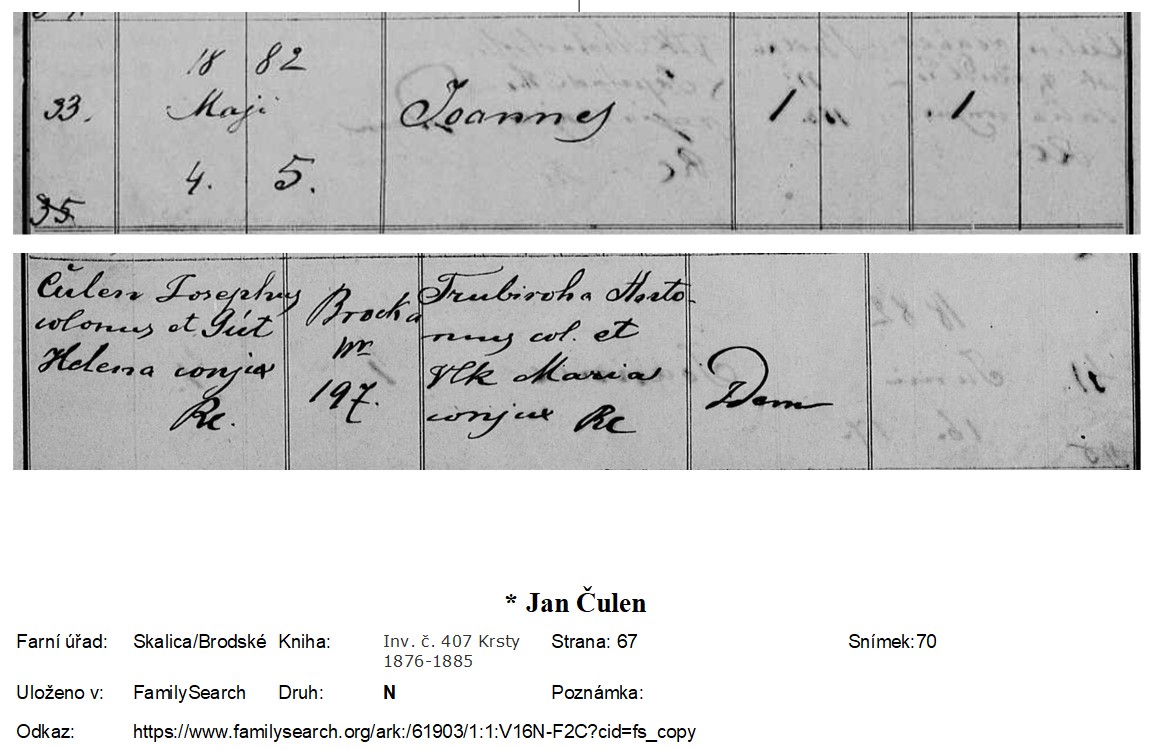 18 82
33. Maji Joannes 1 1
4. 5.
35
Čulen Josephus
colonus et Gút
Helena conjux
Rc.
Brocka
nr
197.
Trubiroha Anto-
nius col. et
Vlk Maria
conjux Rc
Idem
* Jan Čulen
Farní úřad: Skalica/Brodské Kniha: Inv. č. 407 Krsty 1876-1885 Strana: 67 Snímek:70
Uloženo v: FamilySearch Druh: N Poznámka:
Odkaz: https://www.familysearch.org/ark:/61903/1:1:V16N-F2C?cid=fs_copy